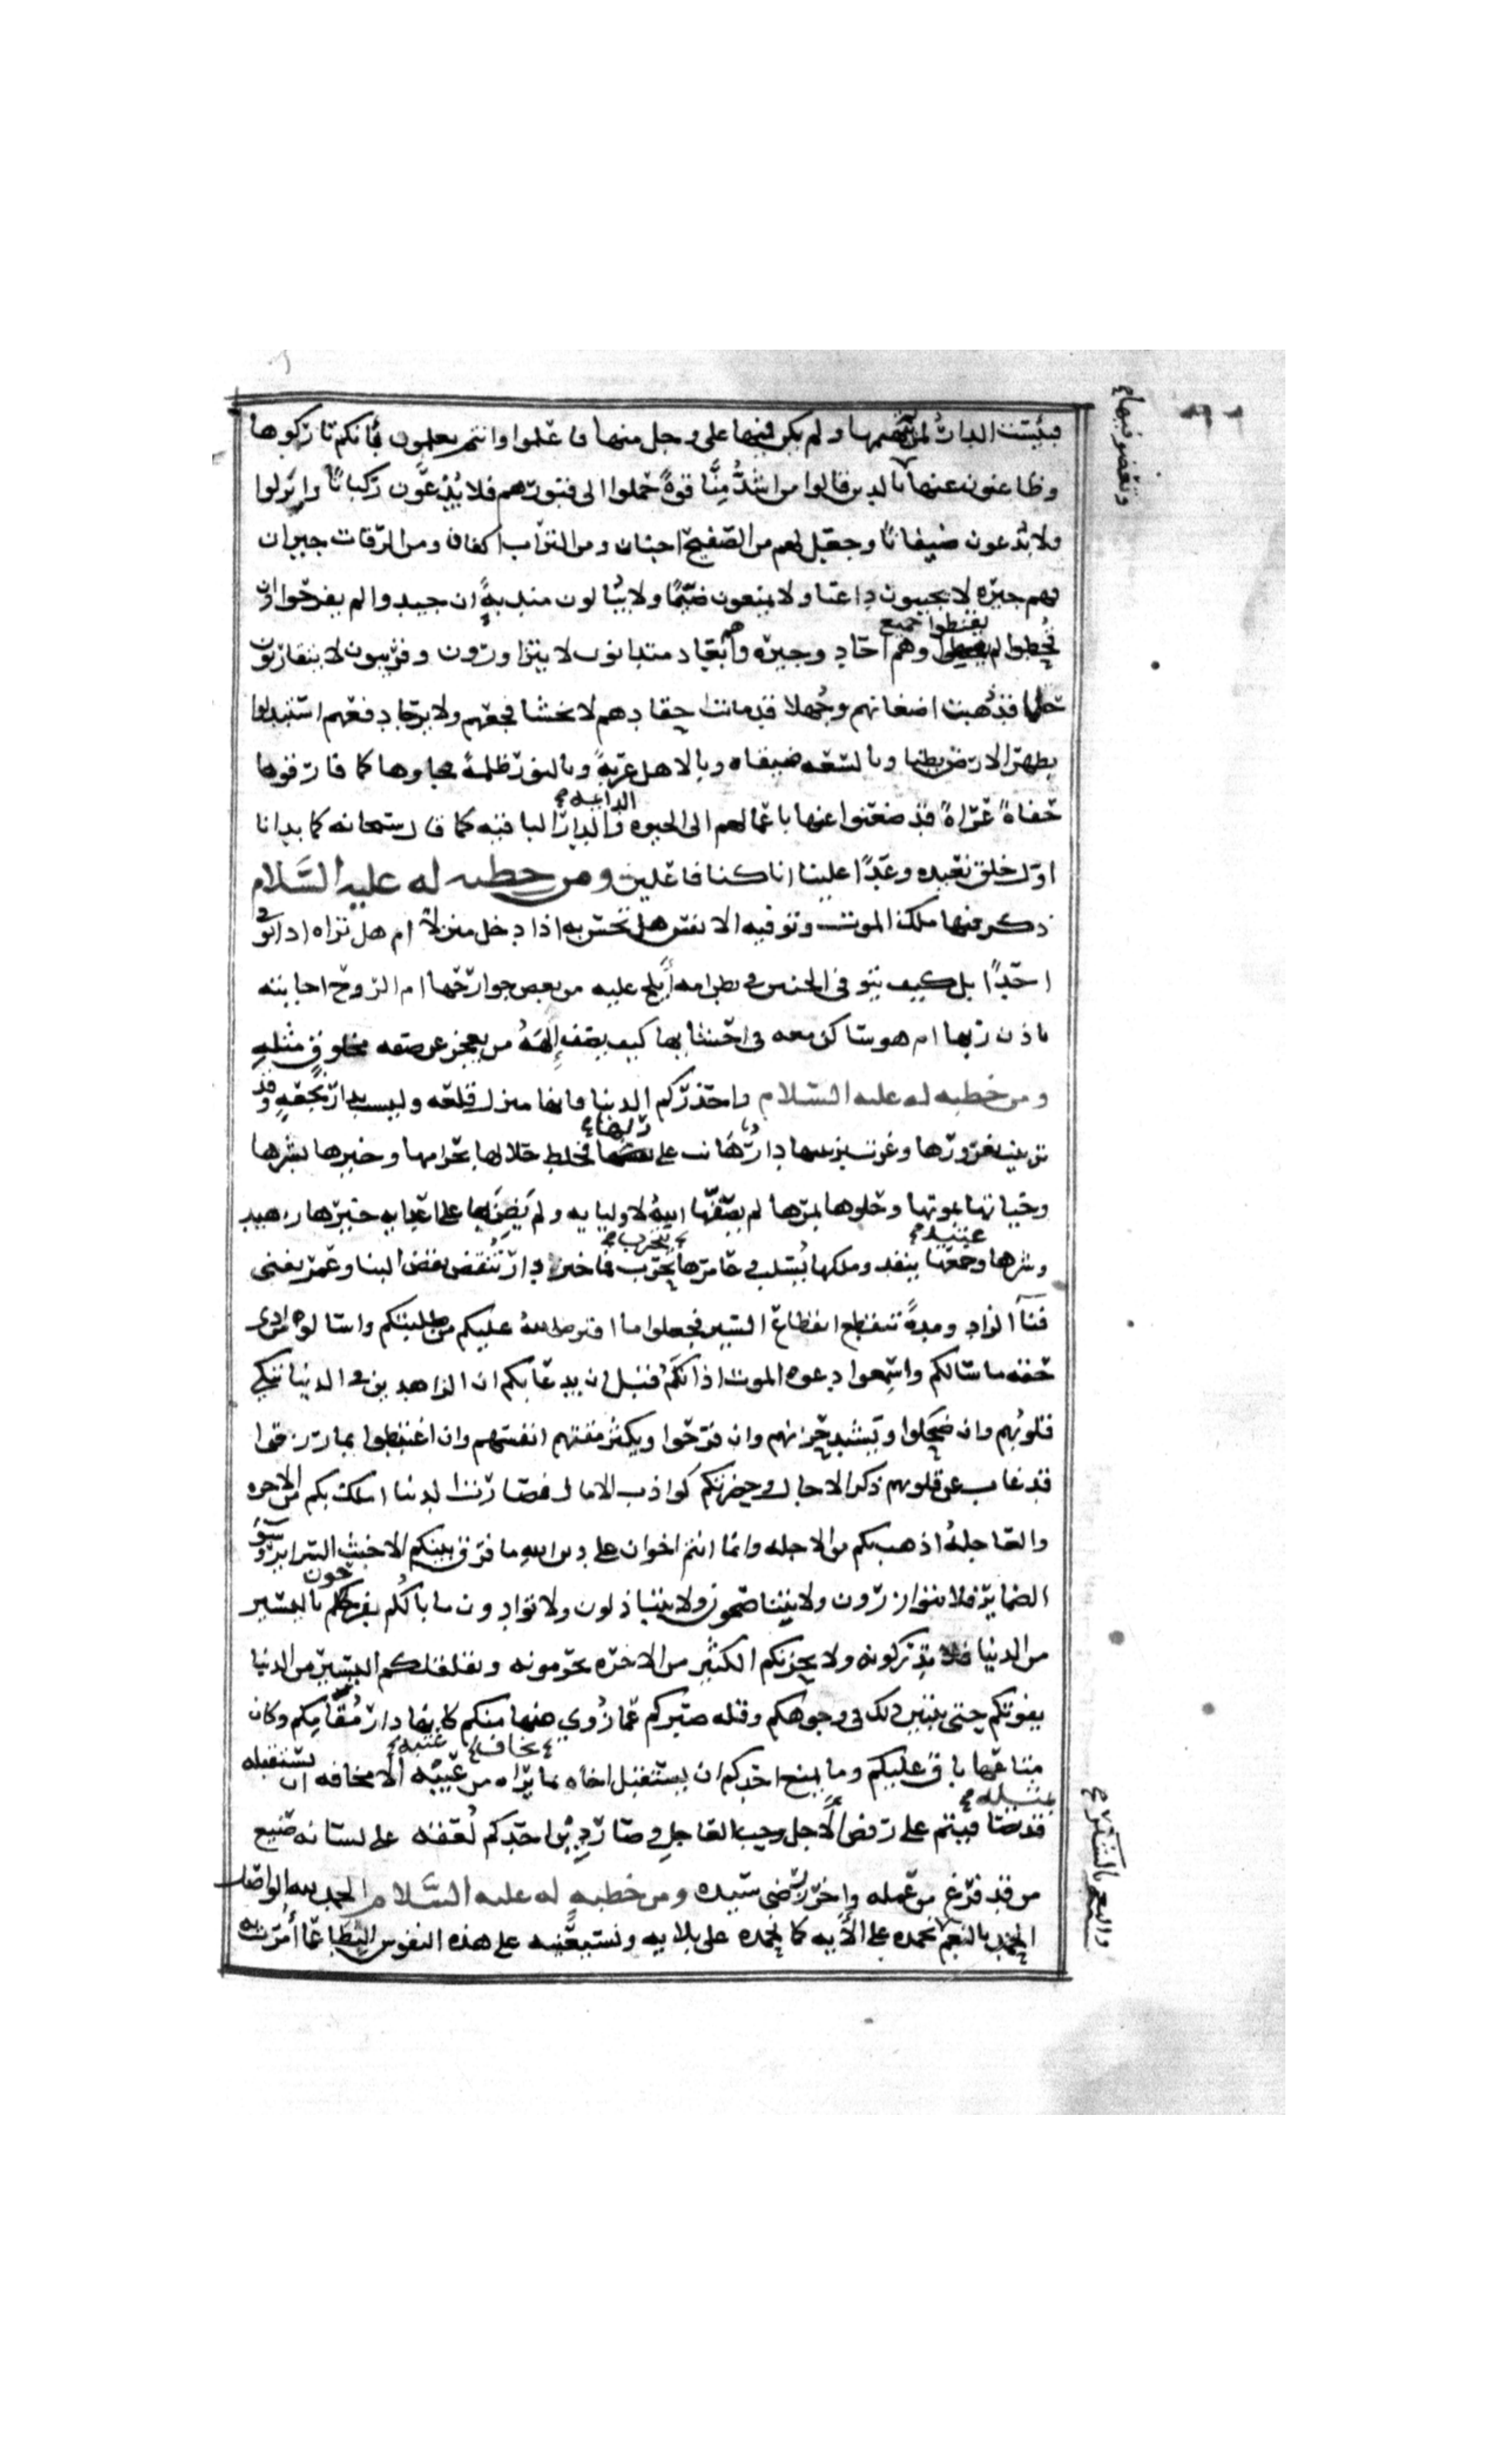 فبئست الدار لمن لم يتهمها ولم يكن فيها على وجل منها فاعلموا وانتم تعلمون بأنكم تاركوها
وظاعنون عنها بالدين قالوا من اشدُّ مِنَّا قوةً حملوا الى قبورهم فلا يُدْعَون ركبانا وانزلوا
ولا يدعون ضيفانا وجعل لهم من الصفيح اجنان ومن التراب اكفان ومن الرفات جيران
فهم جيره لا يجيبون داعيا ولا يمنعون ضيما ولا يبالون مندبةً ان جيدوا لم يفرحوا وان
قحطوا لم يقنطوا جميع وهم احاد وجيره وهم ابعاد متدانون لا يتزاورون وقريبون لا يتقاربون
حلما قد ذهبت اضغانهم وجهلا قد ماتت احقادهم لا يخشا فجعهم ولا يرجا دفعهم استبدلوا
بظهر الارض بطنا وبالسعه ضيقا وبالاهل غربة وبالنور ظلمة فجاوها كما فارقوها
حفاةً عُراةً قد ضعنوا عنها باعمالهم الى الحيوه الدايمه والدار الباقيه كما قال سبحانه كما بدانا
اول خلق نعيده وعدًا علينا انا كنا فاعلين ومن خطبه له عليه السلام
ذكر فيها ملك الموت وتوفيه الانفس هل تحس به اذا دخل منزلا ام هل تراه اذا توفى
احدًا بل كيف يتوفى الجنين في بطن امه أيلج عليه من بعض جوارحها ام الروح اجابته
باذن ربها ام هو ساكن معه في احشايها كيف يصف إلهَهُ من يعجز عن صفه مخلوقٍ مثلهِ
ومن خطبه له عليه السلام واحذركم الدنيا فانها منزل قلعه وليست بدار نجعه وقد
تزينت بغرورها وغرت بزينتها دارٌ هانت على ربها فخلط حلالها بحرامها وخيرها بشرها
وحياتها بموتها وحلوها بمرها لم يصفها الله لاوليايه ولم يَضِنَّ بها على اعدايه خيرها زهيد
وشرها عتيد وجمعها ينفد وملكها يُسلب وعامرها يخرب فما خير دار تُنقض نقض البنا وعمر يفنى
فنآ الزاد ومدةٍ تنقطع انقطاع السير فجعلوا ما افترض الله عليكم من طلبتكم واسالوه من ادى
حقه ما سالكم واسمعوا دعوه الموت اذانكم قبل ان يدعا بكم ان الزاهدين في الدنيا تبكي
قلوبُهم وان ضحكوا ويشتد حزنهم وان فرحوا ويكثر مقتهم انفسهم وان اغتبطوا بما رزقوا
قد غاب عن قلوبهم ذكر الاجال وحضرتكم كواذب الامال فصارت الدنيا املك بكم من الاخره
والعاجلهُ اذهب بكم من الاجله وانما انتم اخوان على دين الله ما فرق بينكم الا خبث السراير وسوٓ
الضماير فلا توازرون ولا تناصحون ولا تباذلون ولا توادون ما بالكم تفرحون باليسير
من الدنيا تدركونه ولا يحزنكم الكثير من الاخره تحرمونه ويقلقكم اليسير من الدنيا
يفوتكم حتى يتبين ذلك في وجوهكم وقله صبركم عما زُوي منها عنكم كانها دار مُقَامِكم وكان
متاعها باق عليكم وما يمنع احدكم ان يستقبل اخاه بما يخاف من عيبه الا مخافه ان يستقبله
بمثله قد تصافيتم على رفض الاجل وحب العاجل وصار دين احدكم لُعقه على لسانه صنيع
من قد فرغ من عمله واحرز رضى سيده ومن خطبه له عليه السلام الحمد لله الواصل
الحمد بالنعم نحمده على الآيه كما نحمده على بلايه ونستعينه على هذه النفوس البطا عما أُمرت به
والنعم بالشكر